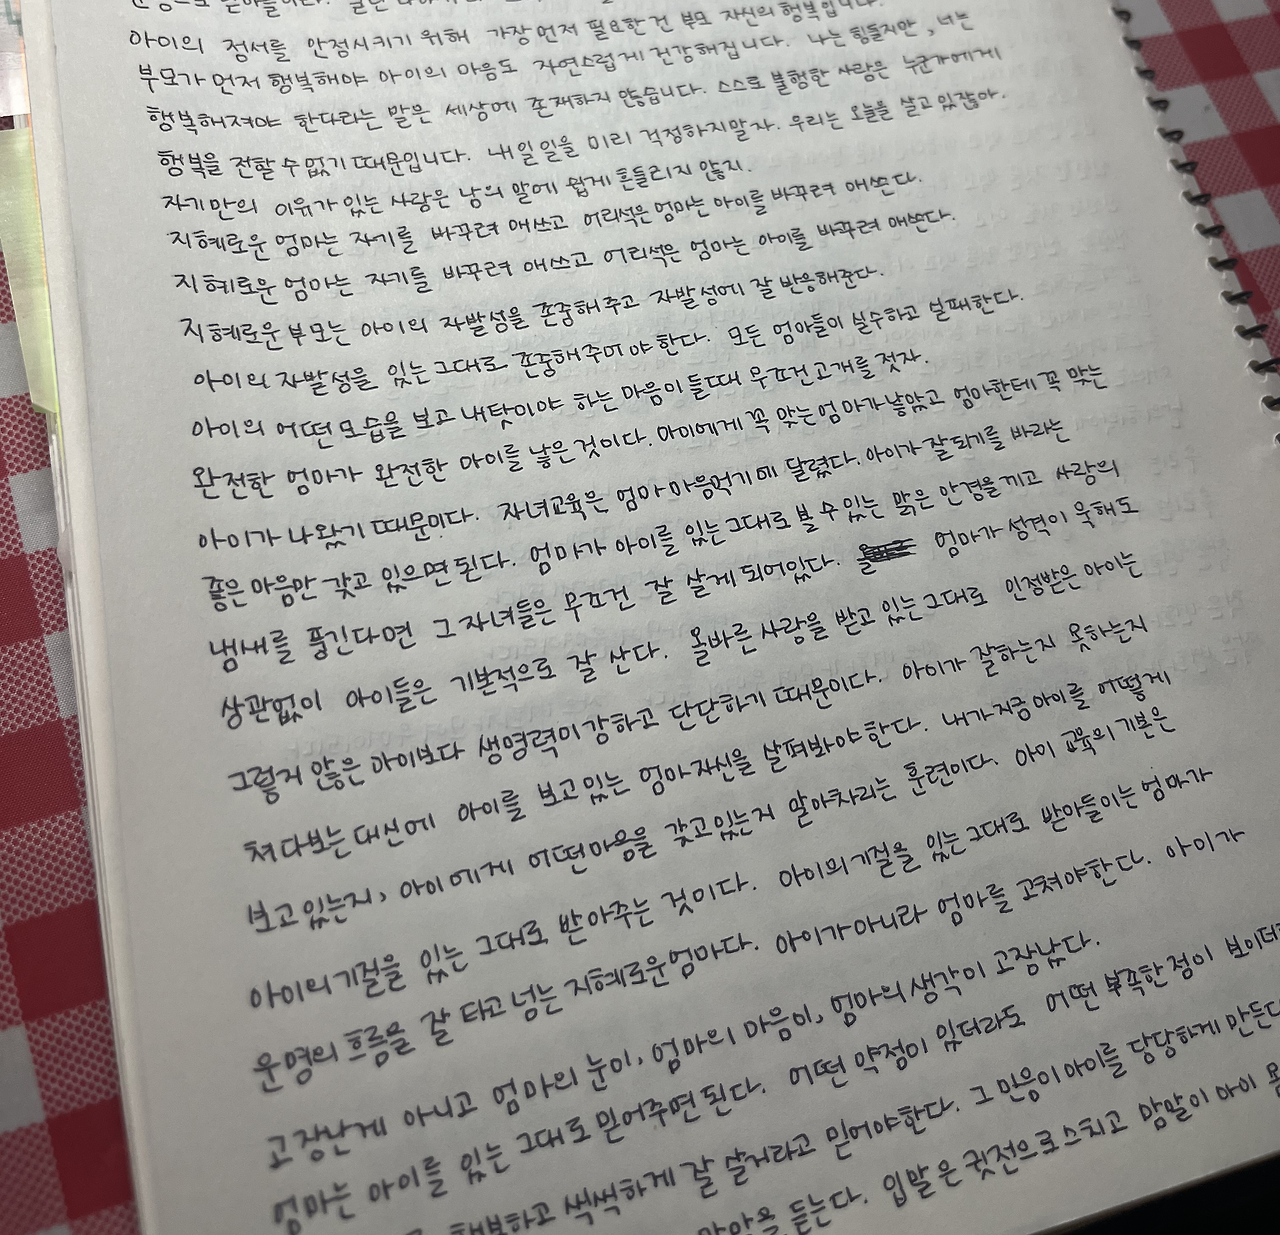 아이의 정서를 안정시키기 위해 가장 먼저 필요한 건 부모 자신의 행복입니다.
부모가 먼저 행복해야 아이의 마음도 자연스럽게 건강해집니다. 나는 힘들지만, 너는
행복해져야 한다라는 말은 세상에 존재하지 않습니다. 스스로 불행한 사람은 누군가에게
행복을 전할 수 없기 때문입니다. 내일 일을 미리 걱정하지말자. 우리는 오늘을 살고 있잖아.
자기만의 이유가 있는 사람은 남의 말에 쉽게 흔들리지 않지.
지혜로운 엄마는 자기를 바꾸려 애쓰고 어리석은 엄마는 아이를 바꾸려 애쓴다.
지혜로운 엄마는 자기를 바꾸려 애쓰고 어리석은 엄마는 아이를 바꾸려 애쓴다.
지혜로운 부모는 아이의 자발성을 존중해주고 자발성에 잘 반응해준다.
아이의 자발성을 있는 그대로 존중해주어야 한다. 모든 엄마들이 실수하고 실패한다.
아이의 어떤 모습을 보고 내탓이야 하는 마음이 들때 무조건 고개를 젓자.
완전한 엄마가 완전한 아이를 낳은 것이다. 아이에게 꼭 맞는 엄마가 낳았고 엄마한테 꼭 맞는
아이가 나왔기 때문이다. 자녀교육은 엄마 마음먹기에 달렸다. 아이가 잘되기를 바라는
좋은 마음만 갖고 있으면 된다. 엄마가 아이를 있는 그대로 볼 수 있는 맑은 안경을 끼고 사랑의
냄새를 풍긴다면 그 자녀들은 무조건 잘 살게 되어있다. 엄마가 성격이 욱해도
상관없이 아이들은 기본적으로 잘 산다. 올바른 사랑을 받고 있는 그대로 인정받은 아이는
그렇지 않은 아이보다 생명력이 강하고 단단하기 때문이다. 아이가 잘하는지 못하는지
쳐다보는 대신에 아이를 보고있는 엄마 자신을 살펴봐야 한다. 내가 지금 아이를 어떻게
보고 있는지, 아이에게 어떤 마음을 갖고 있는지 알아차리는 훈련이다. 아이 교육의 기본은
아이의 기질을 있는 그대로 받아주는 것이다. 아이의 기질을 있는 그대로 받아들이는 엄마가
운명의 흐름을 잘 타고 넘는 지혜로운 엄마다. 아이가 아니라 엄마를 고쳐야한다. 아이가
고장난게 아니고 엄마의 눈이, 엄마의 마음이, 엄마의 생각이 고장났다.
엄마는 아이를 있는 그대로 믿어주면 된다. 어떤 약점이 있더라도 어떤 부족한 점이 보이더라
행복하고 씩씩하게 잘 살거라고 믿어야한다. 그 믿음이 아이를 당당하게 만든다
듣는다. 입말은 귓전으로 스치고 맘말이 아이